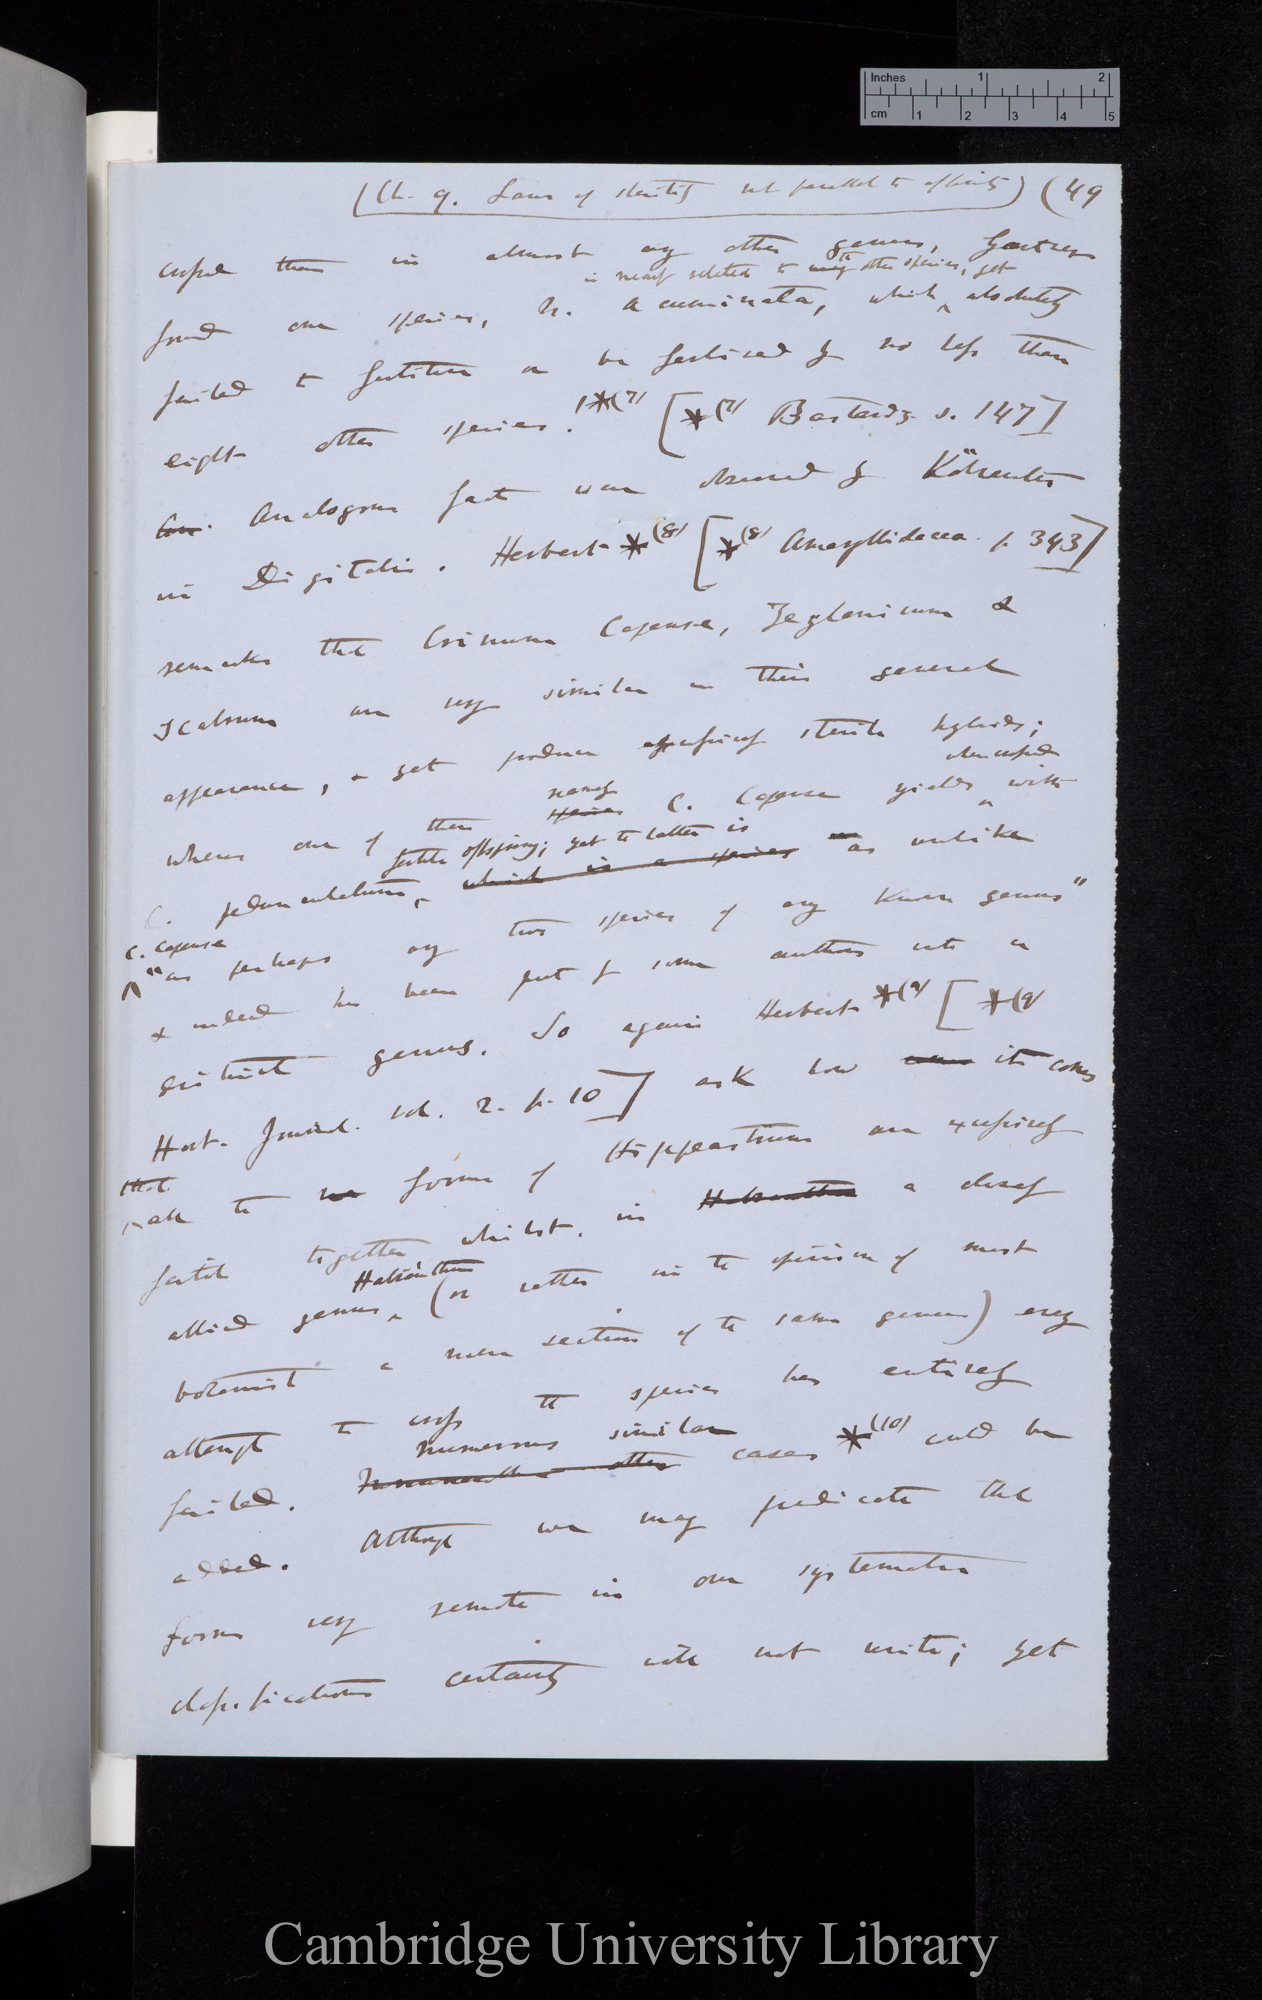 Inches 1 2
cm 1 2 3 4 5
(Ch. 9. Laws of sterility not parallel to affinity) (49
crossed than in almost any other genus, Gärtner
is nearly related to many other species, yet
found one species, N. acuminata, which absolutely
failed to fertilise or be fertilised by no less than
eight other species!*(7) [*(7) Bastardz. s. 147]
Analogous fact was observed by Kölreuter
in Digitalis. Herbert *(8) [*(8) Amaryllidaceae p. 343]
remarks that Crinum Capense, Zeylanicum &
Scabrum are very similar in their general
appearance, & yet produce excessively sterile hybrids;
when crossed
whereas one of them namely C. Capense yields with
fertile offspring; yet the latter is
C. pedunculatum, which is a species as unlike
C. Capense
"as perhaps any two species of any known genus"
& indeed has been put by some authors into a
distinct genus. So again Herbert *(9) [*(9)
Hort. Journal. vol. 2. p. 10] asks how it comes
that
all the forms of Hippeastrum are excessively
fertile together whilst, in Habranthus a closely
Habranthus
allied genus, (or rather in the opinion of most
botanist a mere section of the same genus) every
attempt to cross the species has entirely
numerous similar
failed. Innumerable other cases *(10) could be
added. Although we may predicate that
forms very remote in our systematic
classifications certainly will not unite; yet
Cambridge University Library